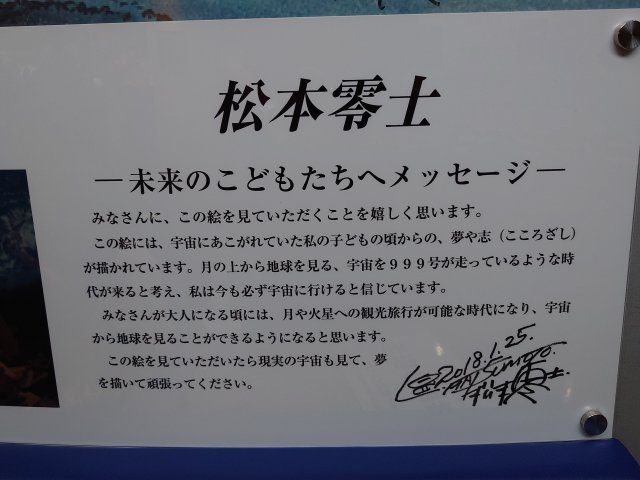 松本零士
―未来のこどもたちへメッセージ―
みなさんに、この絵を見ていただくことを嬉しく思います。
この絵には、宇宙にあこがれていた私の子どもの頃からの、夢や志（こころざし）
が描かれています。月の上から地球を見る、宇宙を９９９号が走っているような時
代が来ると考え、私は今も必ず宇宙に行けると信じています。
みなさんが大人になる頃には、月や火星への観光旅行が可能な時代になり、宇宙
から地球を見ることができるようになると思います。
この絵を見ていただいたら現実の宇宙も見て、夢
を描いて頑張ってください。
2018.1.25.
松本零士.